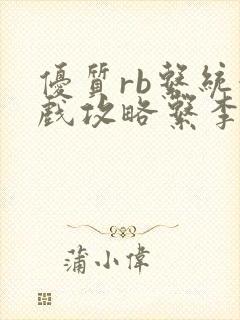 優質rb繫統
戲攻略繫李
蒲小偉